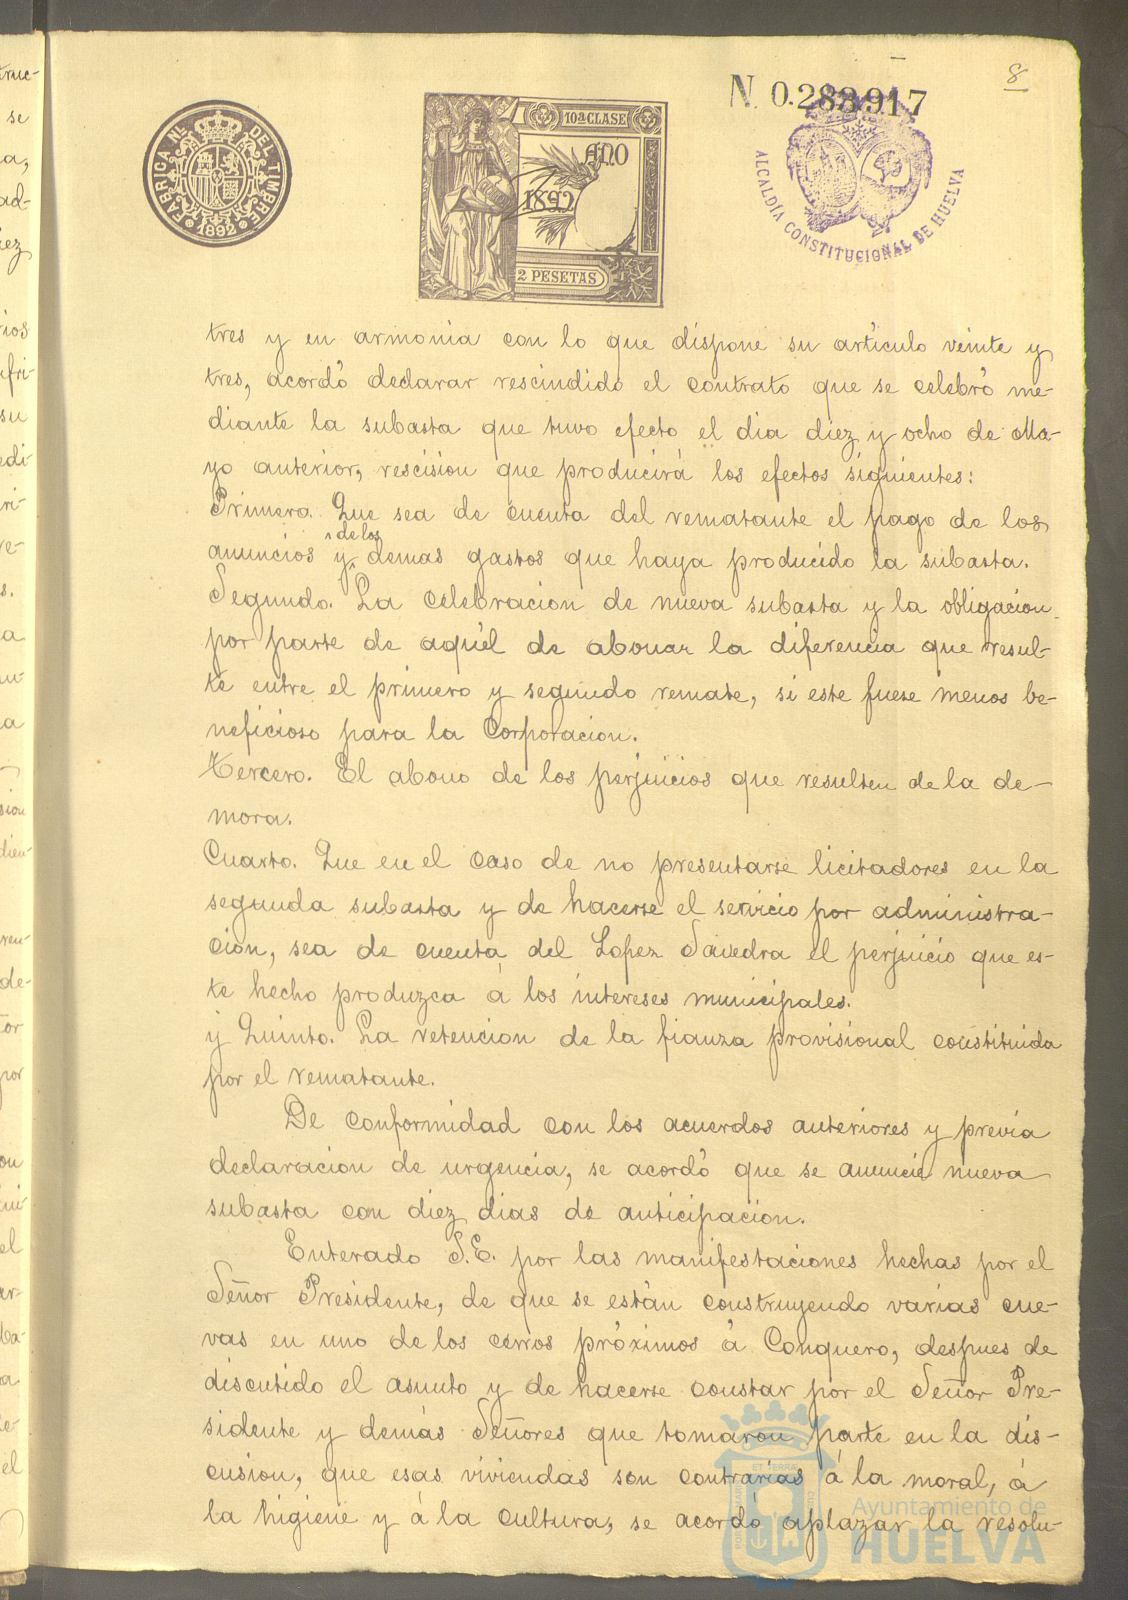 8
N. 0.283.917
FABRICA NL. DEL TIMBRE
1892
10ª CLASE
AÑO
1892
2 PESETAS
ALCALDÍA CONSTITUCIONAL DE HUELVA
tres y en armonia con lo que dispone su artículo veinte y
tres, acordó declarar rescindido el contrato que se celebró me-
diante la subasta que tuvo efecto el dia diez y ocho de Ma-
yo anterior, rescision que producirá los efectos siguientes:
Primero. Que sea de cuenta del rematante el pago de los
de los
anuncios y demas gastos que haya producido la subasta.
Segundo. La celebracion de nueva subasta y la obligacion
por parte de aquél de abonar la diferencia que resul-
te entre el primero y segundo remate, si este fuese menos be-
neficioso para la Corporacion.
Tercero. El abono de los perjuicios que resulten de la de-
mora.
Cuarto. Que en el caso de no presentarse licitadores en la
segunda subasta y de hacerse el servicio por administra-
cion, sea de cuenta del Lopez Savedra el perjuicio que es-
te hecho produzca á los intereses municipales.
y Quinto. La retencion de la fianza provisional constituida
por el rematante.
De conformidad con los acuerdos anteriores y prévia
declaracion de urgencia, se acordó que se anuncie nueva
subasta con diez dias de anticipacion.
Enterado S.E. por las manifestaciones hechas por el
Señor Presidente, de que se están construyendo varias cue-
vas en uno de los cerros próximos á Conquero, despues de
discutido el asunto y de hacerse constar por el Señor Pre-
sidente y demás Señores que tomaron parte en la dis-
cusion, que esas viviendas son contrarias á la moral, á
la higiene y á la cultura, se acordó aplazar la resolu-
Ayuntamiento de
HUELVA